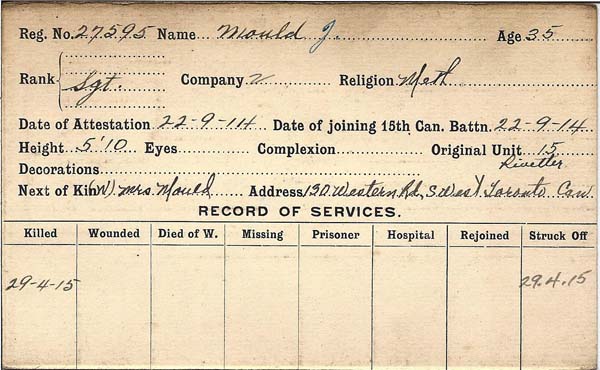 Reg. No. 27595 Name Mould J. Age 35
Rank Sgt. Company 2 Religion Meth
Date of Attestation 22-9-14 Date of joining 15th Can. Battn. 22-9-14
Height 5'10 Eyes Complexion Original Unit 15
Decorations Rivetter
Next of Kin (W) Mrs Mould Address 130 Western Rd, S West Toronto Can
RECORD OF SERVICES.
Killed Wounded Died of W. Missing Prisoner Hospital Rejoined Struck Off
29-4-15 29.4.15